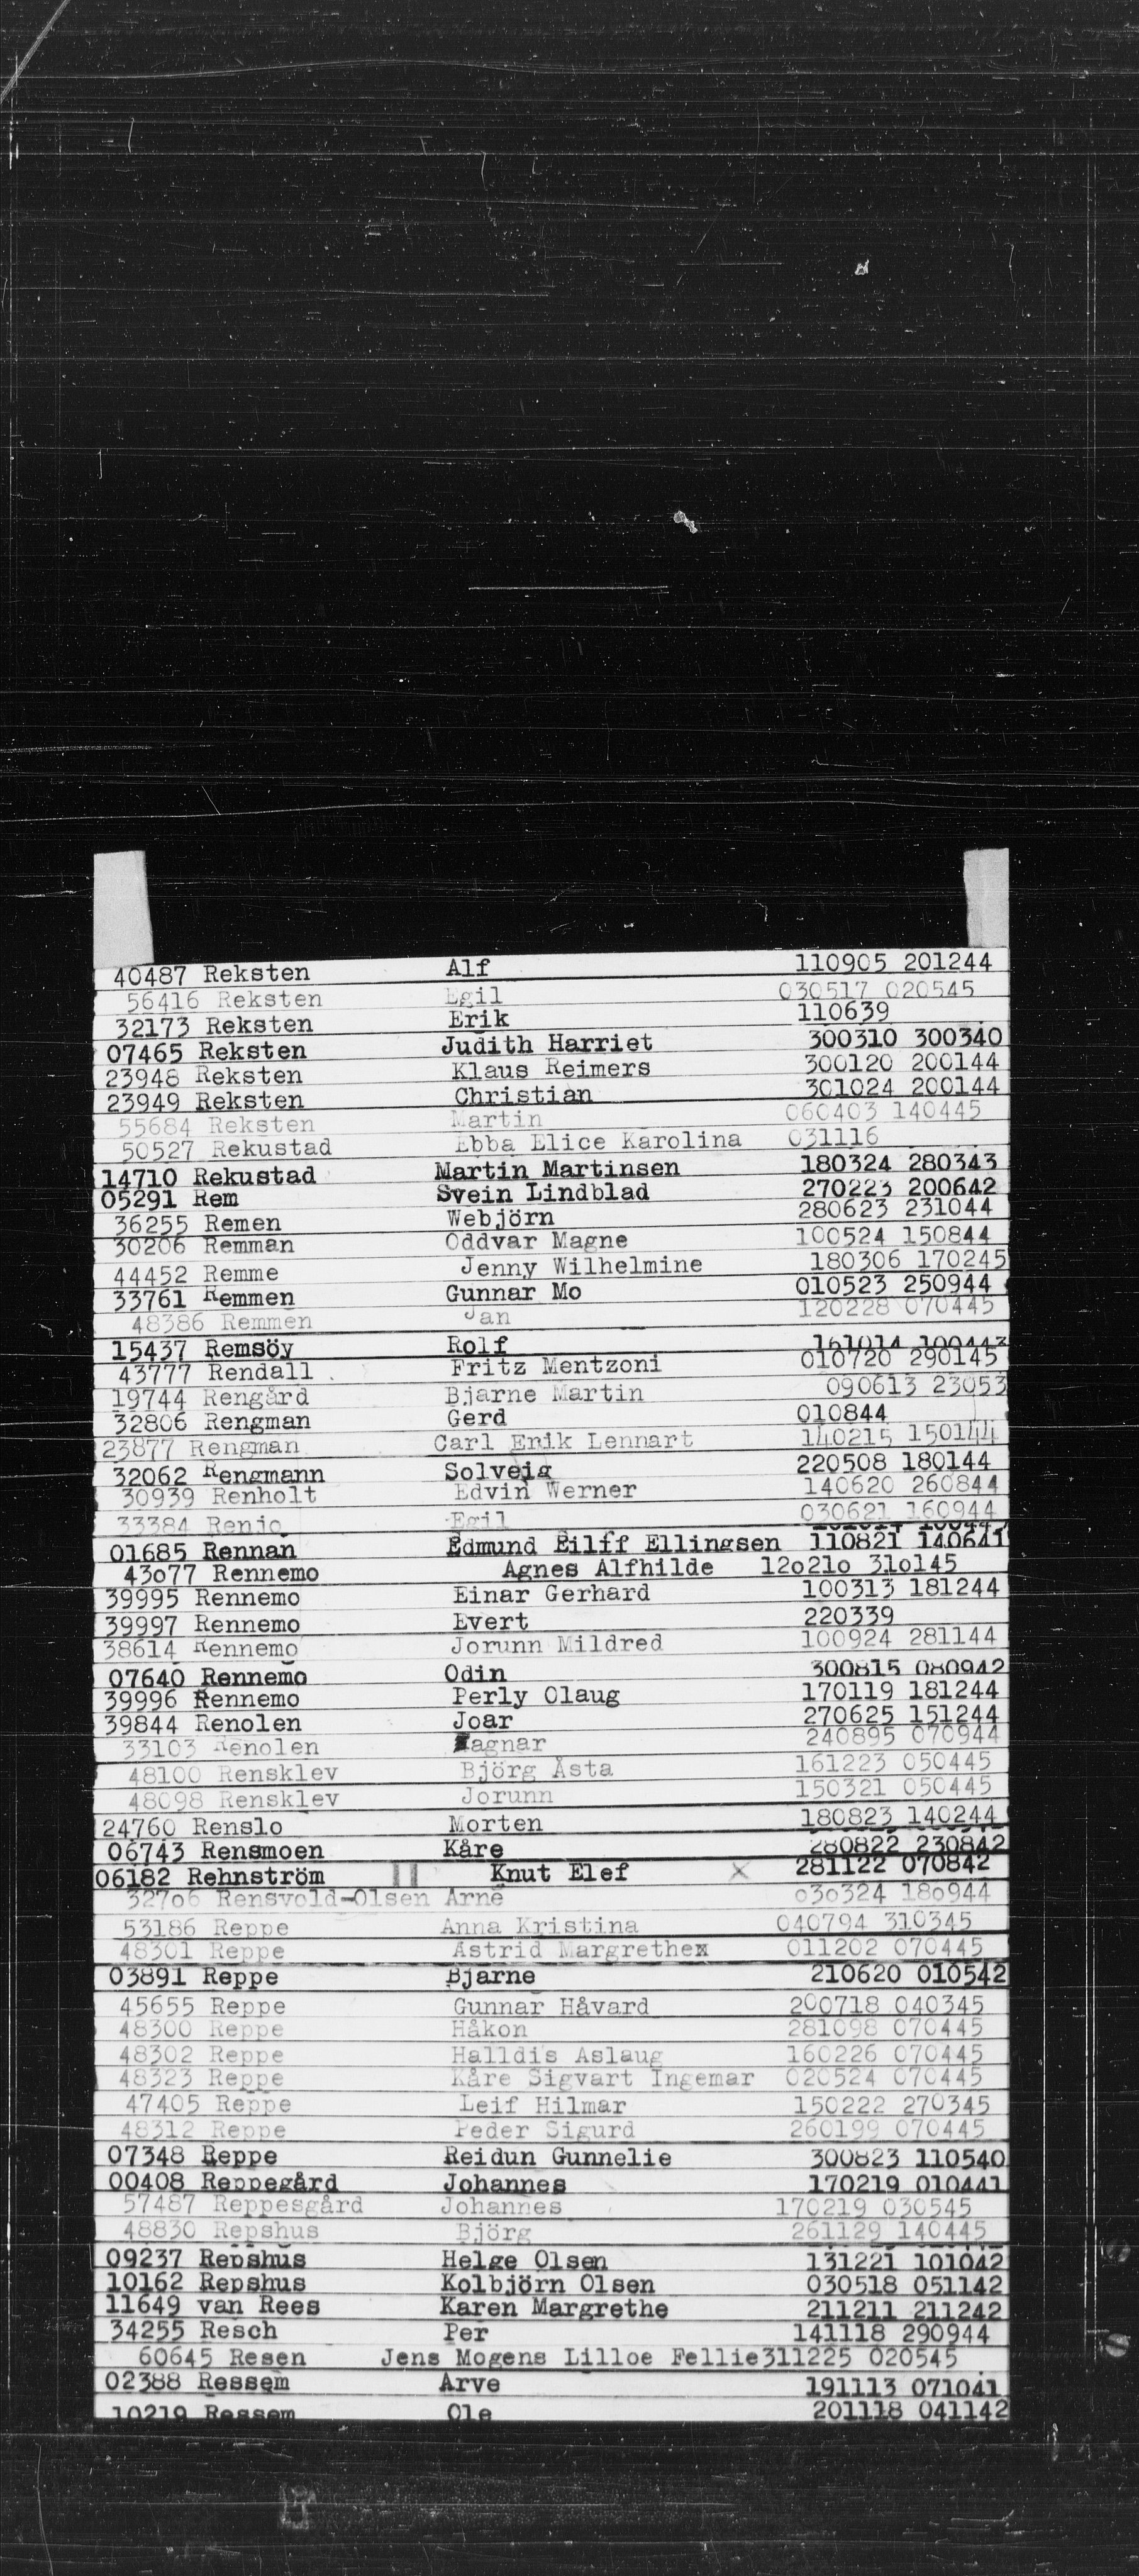 40487 Reksten Alf 110905 201244
56416 Reksten Egil 030517 020545
32173 Reksten Erik 110639
07465 Reksten Judith Harriet 300310 300340
23948 Reksten Klaus Reimers 300120 200144
23949 Reksten Christian 301024 200144
55684 Reksten Martin 060403 140445
50527 Rekustad Ebba Elice Karolina 031116
14710 Rekustad Martin Martinsen 180324 280343
05291 Rem Svein Lindblad 270223 200642
36255 Remen Webjörn 280623 231044
30206 Remman Oddvar Magne 100524 150844
44452 Remme Jenny Wilhelmine 180306 170245
33761 Remmen Gunnar Mo 010523 250944
48386 Remmen Jan 120228 070445
15437 Remsöy Rolf 161014 100443
43777 Rendall Fritz Mentzoni 010720 290145
19744 Rengård Bjarne Martin 090613 23053
32806 Rengman Gerd 010844
23877 Rengman Carl Erik Lennart 140215 150144
32062 Rengmann Solveig 220508 180144
30939 Renholt Edvin Werner 140620 260844
33384 Renjo Egil 030621 160944
01685 Rennan Edmund Eilff Ellingsen 110821 140641
43o77 Rennemo Agnes Alfhilde 12o21o 31o145
39995 Rennemo Einar Gerhard 100313 181244
39997 Rennemo Evert 220339
38614 Rennemo Jorunn Mildred 100924 281144
07640 Rennemo Odin 300815 080942
39996 Rennemo Perly Olaug 170119 181244
39844 Renolen Joar 270625 151244
33103 Renolen Ragnar 240895 070944
48100 Rensklev Björg Åsta 161223 050445
48098 Rensklev Jorunn 150321 050445
24760 Renslo Morten 180823 140244
06743 Rensmoen Kåre 280822 230842
06182 Rehnström || Knut Elef x 281122 070842
327o6 Rensvold-Olsen Arne o3o324 18o944
53186 Reppe Anna Kristina 040794 310345
48301 Reppe Astrid Margrethex 011202 070445
03891 Reppe Bjarne 210620 010542
45655 Reppe Gunnar Håvard 200718 040345
48300 Reppe Håkon 281098 070445
48302 Reppe Halldis Aslaug 160226 070445
48323 Reppe Kåre Sigvart Ingemar 020524 070445
47405 Reppe Leif Hilmar 150222 270345
48312 Reppe Peder Sigurd 260199 070445
07348 Reppe Reidun Gunnelie 300823 110540
00408 Reppegård Johannes 170219 010441
57487 Reppesgård Johannes 170219 030545
48830 Repshus Björg 261129 140445
09237 Repshus Helge Olsen 131221 101042
10162 Repshus Kolbjörn Olsen 030518 051142
11649 van Rees Karen Margrethe 211211 211242
34255 Resch Per 141118 290944
60645 Resen Jens Mogens Lilloe Fellie311225 020545
02388 Ressem Arve 191113 071041
10219 Ressem Ole 201118 041142